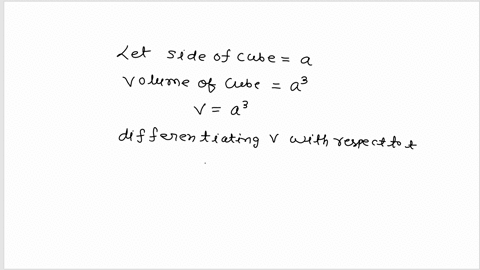 Let side of cube = a
volume of cube = a³
v = a³
differentiating v with respect to t